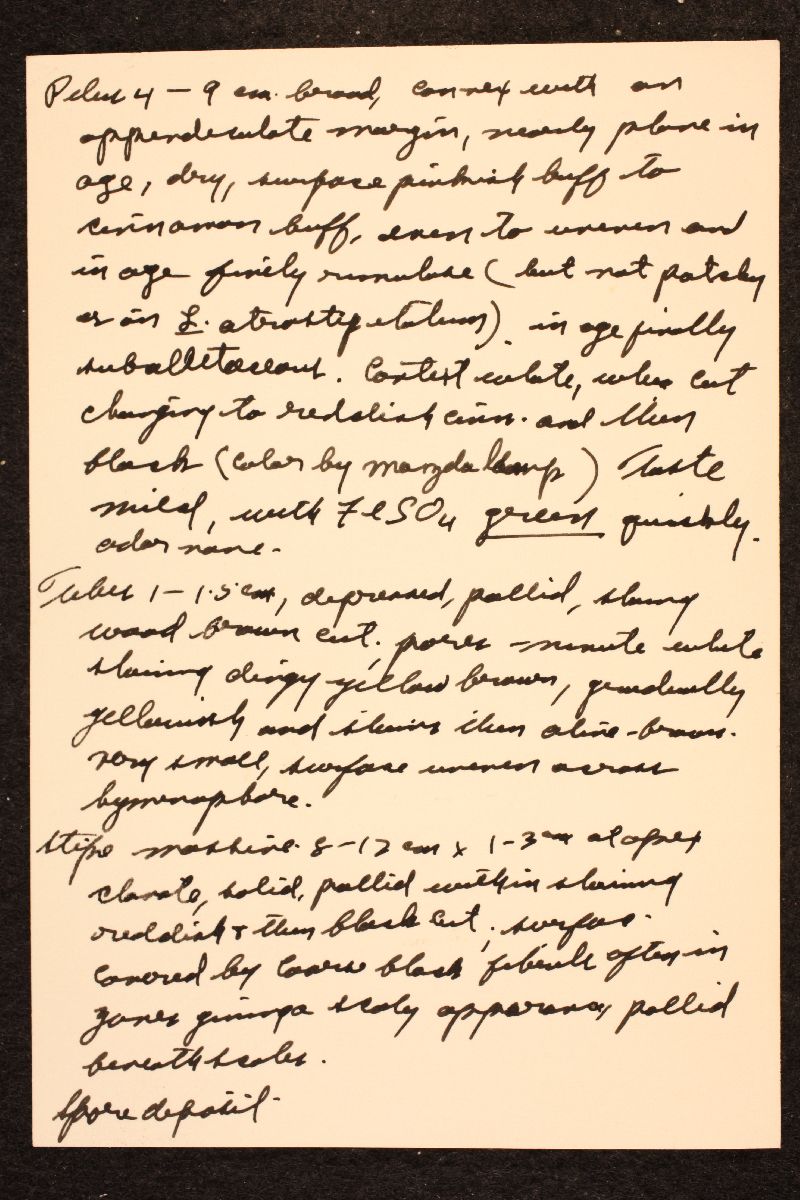 Pileus 4 – 9 cm. broad, convex with an
appendiculate margin, nearly plane in
age, dry, surface pinkish buff to
cinnamon buff, even to uneven and
in age finely rimulose (but not patchy
as in L. atrostipitatum) in age finally
suballutaceous. Context white, when cut
changing to reddish cinn. and then
black (color by mazda lamp) Taste
mild, with FeSO4 green quickly.
odor none.
Tubes 1 – 1.5 cm, depressed, pallid, slowly
wood brown cut. pores minute white
staining dingy yellow brown, gradually
yellowish and stains then olive-brown.
very small, surface uneven across
hymenophore.
Stipe massive. 8–12 cm x 1–3 cm at apex
clavate, solid, pallid within staining
reddish & then black cut; surface
covered by coarse black fibrils often in
zones giving a scaly appearance, pallid
beneath scales.
Spore deposit.